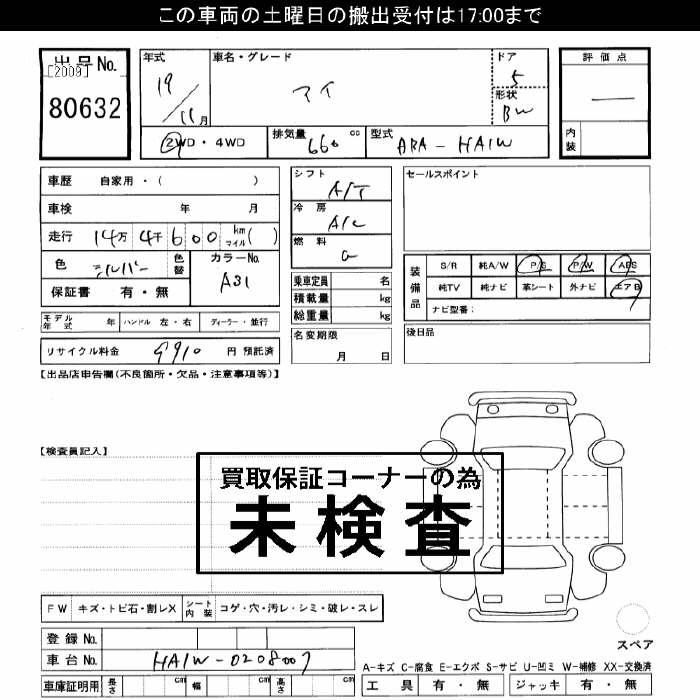 この車両の土曜日の搬出受付は17:00まで
出品No.
[2009]
80632
年式
19/11月
車名・グレード
アイ
ドア
5
形状
BW
評価点
―
内装
②WD・4WD
排気量 660 cc
型式 ABA-HA1W
車歴 自家用・( )
車検 年 月
走行 14万 4千 600 km マイル ( )
色 シルバー
色替
カラーNo. A31
保証書 有・無
シフト A/T
冷房 A/C
燃料 G
乗車定員 名
積載量 kg
総重量 kg
名変期限
月 日
セールスポイント
装備品
S/R 純A/W P/S P/W ABS
純TV 純ナビ 革シート 外ナビ エアB
ナビ型番:
後日品
モデル年式 年 ハンドル 左・右 ディーラー・並行
リサイクル料金 9910 円 預託済
【出品店申告欄(不良箇所・欠品・注意事項等)】
【検査員記入】
買取保証コーナーの為
未検査
FW キズ・トビ石・割レX シート内装 コゲ・穴・汚レ・シミ・破レ・スレ
登録No.
車台No. HA1W-0208007
車庫証明用 長さ cm 幅 cm 高さ cm
スペア
A-キズ C-腐食 E-エクボ S-サビ U-凹ミ W-補修 XX-交換済
工具 有・無 ジャッキ 有・無